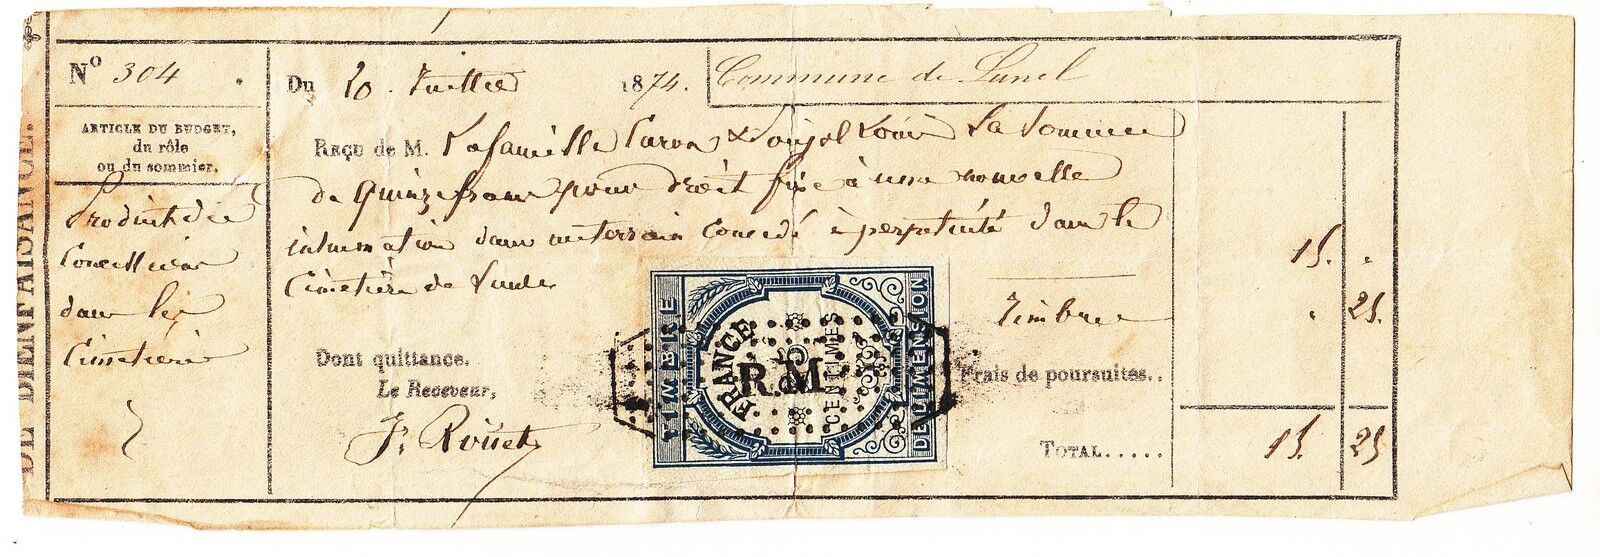 DE BIENFAISANCE.
No 304
ARTICLE DU BUDGET,
du rôle
ou du sommier.
Produit des
Concessions
dans les
Cimetières
Du 20 Juillet 1874.
Commune de Lunel
REÇU de M. La famille Caron & Poujol Louis La Somme
de quinze francs pour droit fixe à une nouvelle
inhumation dans un terrain Concédé à perpétuité dans le
Cimetière de Lunel
15. "
Timbre " 25.
Dont quittance.
Le Receveur,
TIMBRE
FRANCE
25
CENTIMES
DE DIMENSION
R.M
Frais de poursuites..
TOTAL..... 15. 25